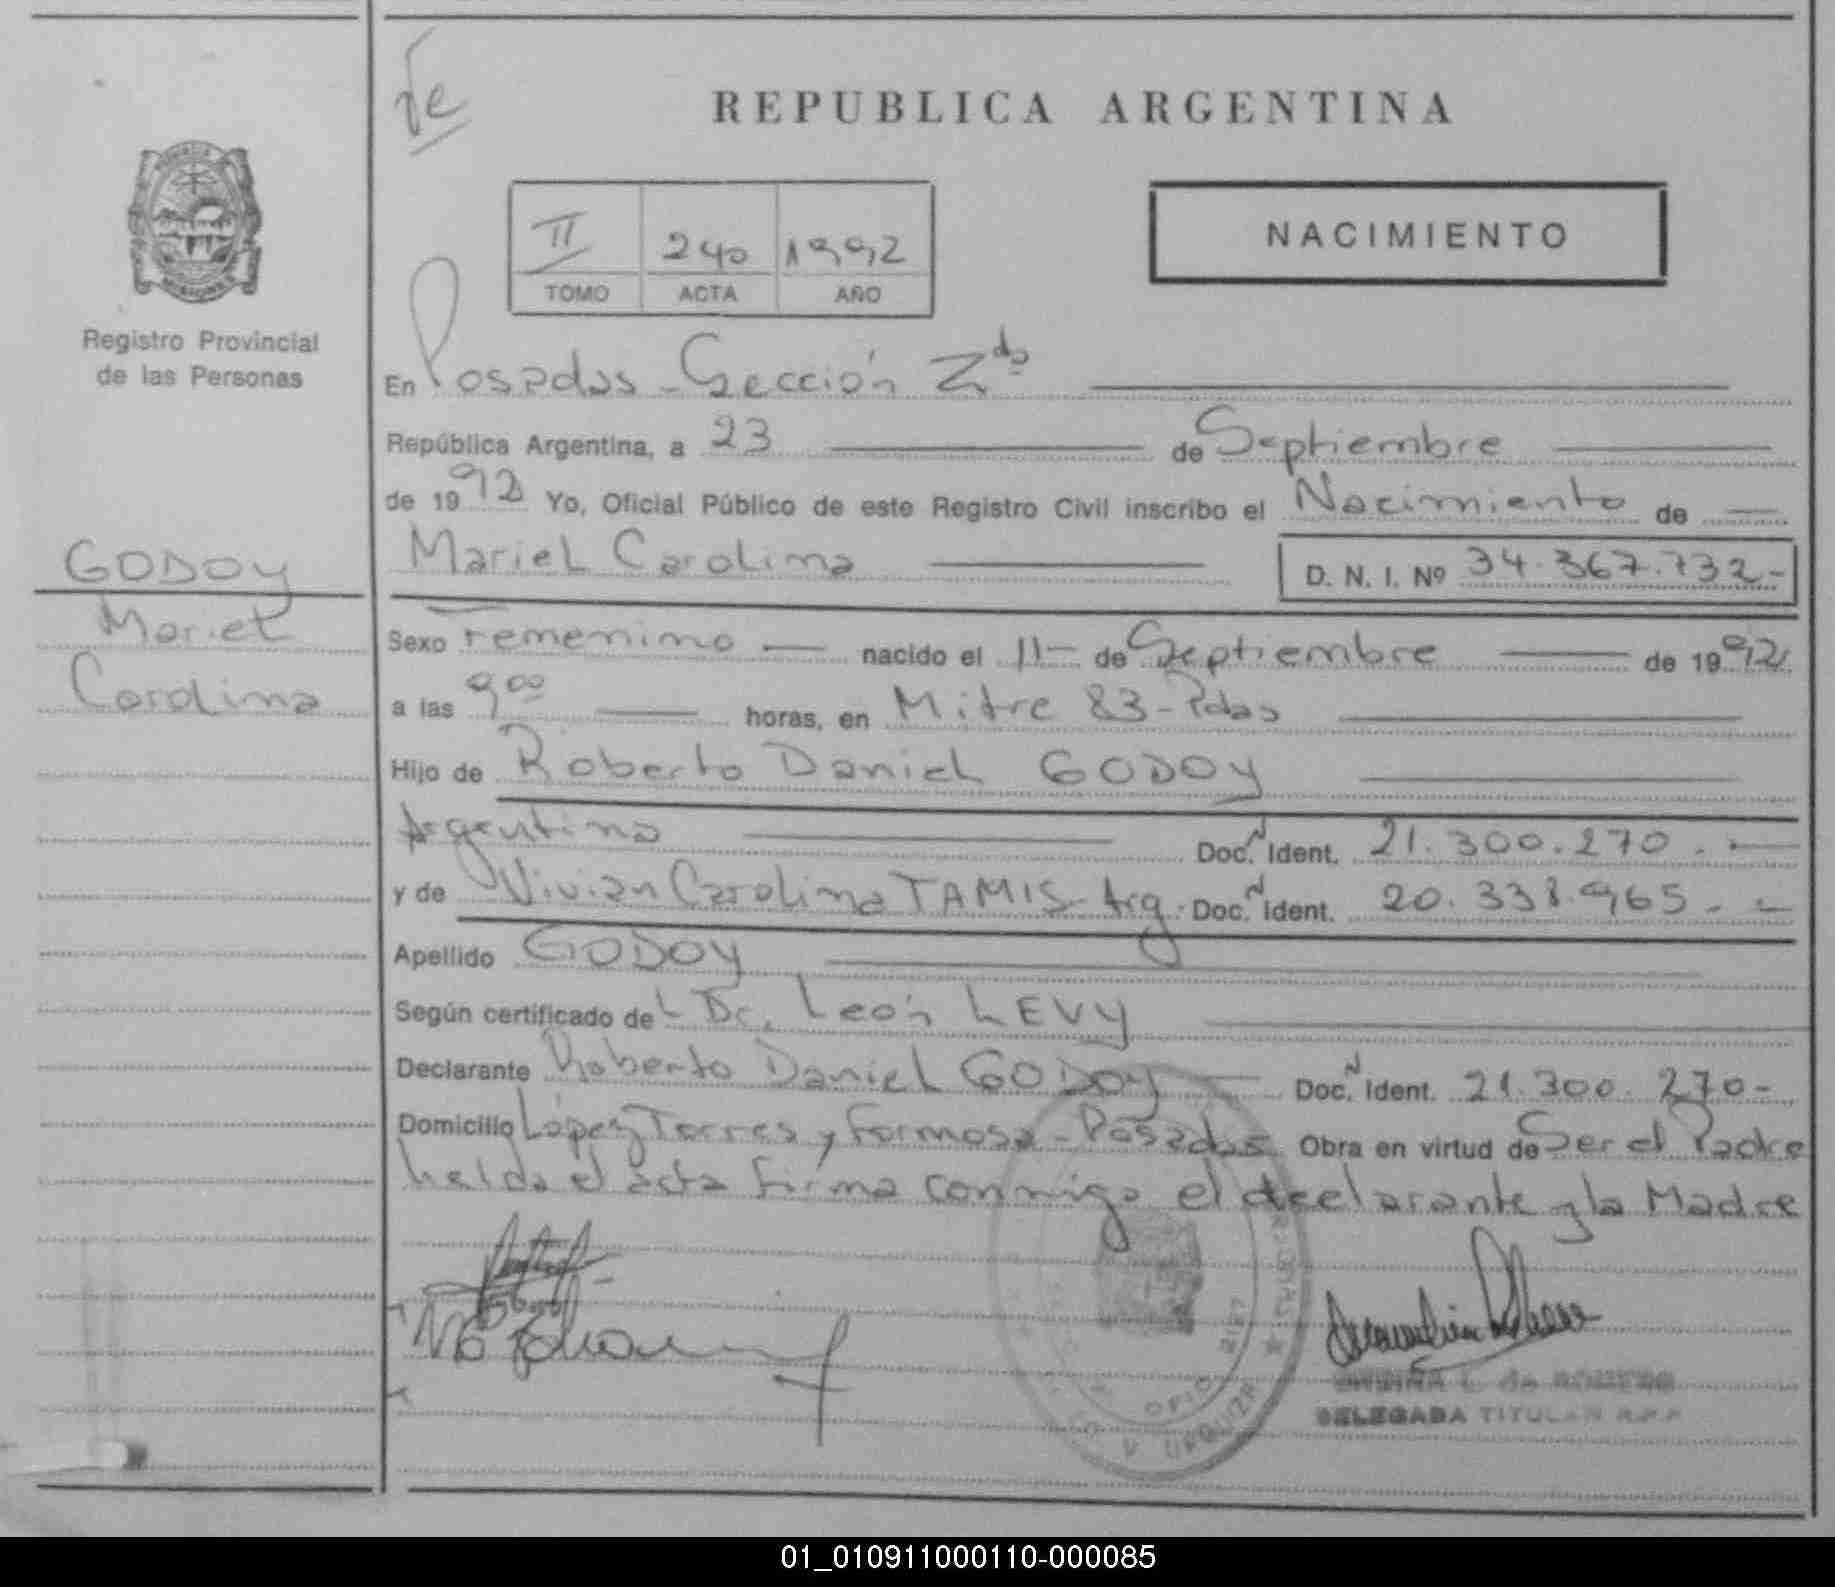 REPUBLICA ARGENTINA
NACIMIENTO
II 240 1992
TOMO ACTA AÑO
Registro Provincial
de las Personas
En Posadas - Sección 2da
República Argentina, a 23 de Septiembre
de 1992 Yo, Oficial Público de este Registro Civil inscribo el Nacimiento de
Mariel Carolina D. N. I. Nº 34.367.732-
GODOY
Mariel
Carolina
Sexo Femenino nacido el 11 de Septiembre de 1992
a las 9 00 horas, en Mitre 83 - Pdas
Hijo de Roberto Daniel GODOY
Argentino Doc. N Ident. 21.300.270.-
y de Vivian Carolina TAMIS - Arg. Doc. N Ident. 20.338.965.-
Apellido GODOY
Según certificado del Dr. León LEVY
Declarante Roberto Daniel GODOY Doc. N Ident. 21.300.270-
Domicilio López Torres y Formosa - Posadas Obra en virtud de Ser el Padre
leída el acta firma conmigo el declarante y la Madre
OFIC
URQUIZA
L. de
DELEGADA TITULAR R.P.P.
01_010911000110-000085